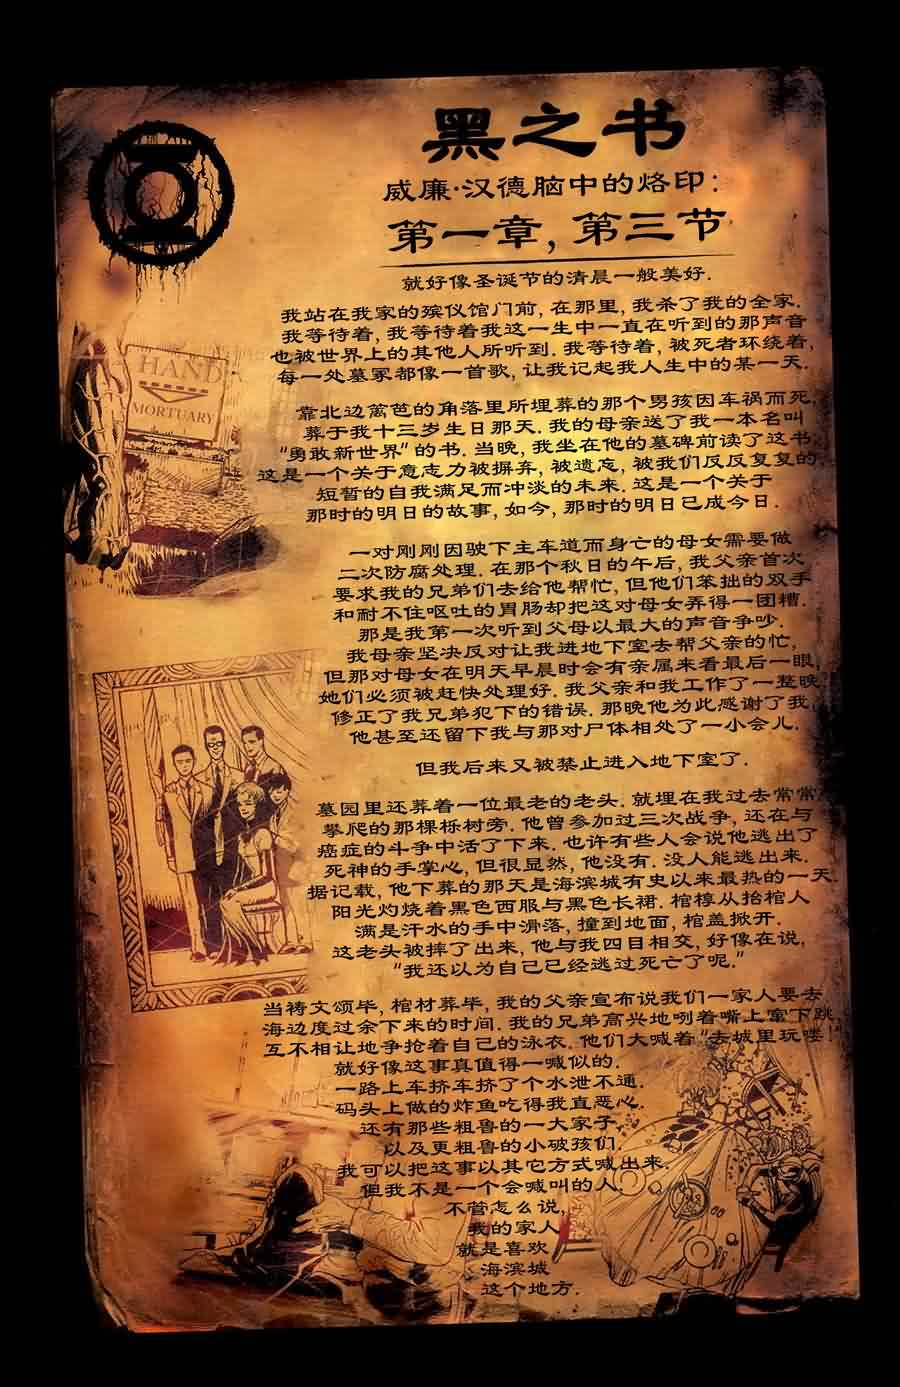 黑之书
威廉·汉德脑中的烙印：
第一章，第三节
就好像圣诞节的清晨一般美好.
我站在我家的殡仪馆门前, 在那里, 我杀了我的全家.
我等待着, 我等待着我这一生中一直在听到的那声音
也被世界上的其他人所听到. 我等待着, 被死者环绕着,
每一处墓冢都像一首歌, 让我记起我人生中的某一天.
HAND
MORTUARY
靠北边篱笆的角落里所埋葬的那个男孩因车祸而死,
葬于我十三岁生日那天. 我的母亲送了我一本名叫
“勇敢新世界”的书. 当晚, 我坐在他的墓碑前读了这书.
这是一个关于意志力被摒弃, 被遗忘, 被我们反反复复的
短暂的自我满足而冲淡的未来. 这是一个关于
那时的明日的故事, 如今, 那时的明日已成今日.
一对刚刚因驶下主车道而身亡的母女需要做
二次防腐处理. 在那个秋日的午后, 我父亲首次
要求我的兄弟们去给他帮忙, 但他们笨拙的双手
和耐不住呕吐的胃肠却把这对母女弄得一团糟.
那是我第一次听到父母以最大的声音争吵.
我母亲坚决反对让我进地下室去帮父亲的忙,
但那对母女在明天早晨时会有亲属来看最后一眼,
她们必须被赶快处理好. 我父亲和我工作了一整晚,
修正了我兄弟犯下的错误. 那晚他为此感谢了我,
他甚至还留下我与那对尸体相处了一小会儿.
但我后来又被禁止进入地下室了.
墓园里还葬着一位最老的老头. 就埋在我过去常常
攀爬的那棵栎树旁. 他曾参加过三次战争, 还在与
癌症的斗争中活了下来. 也许有些人会说他逃出了
死神的手掌心, 但很显然, 他没有. 没人能逃出来.
据记载, 他下葬的那天是海滨城有史以来最热的一天.
阳光灼烧着黑色西服与黑色长裙. 棺椁从抬棺人
满是汗水的手中滑落, 撞到地面, 棺盖掀开.
这老头被摔了出来, 他与我四目相交, 好像在说,
“我还以为自己已经逃过死亡了呢.”
当祷文颂毕, 棺材葬毕, 我的父亲宣布说我们一家人要去
海边度过余下来的时间. 我的兄弟高兴地咧着嘴上窜下跳,
互不相让地争抢着自己的泳衣. 他们大喊着“去城里玩喽!”
就好像这事真值得一喊似的.
一路上车挤车挤了个水泄不通.
码头上做的炸鱼吃得我直恶心.
还有那些粗鲁的一大家子,
以及更粗鲁的小破孩们.
我可以把这事以其它方式喊出来.
但我不是一个会喊叫的人.
不管怎么说,
我的家人
就是喜欢
海滨城
这个地方.